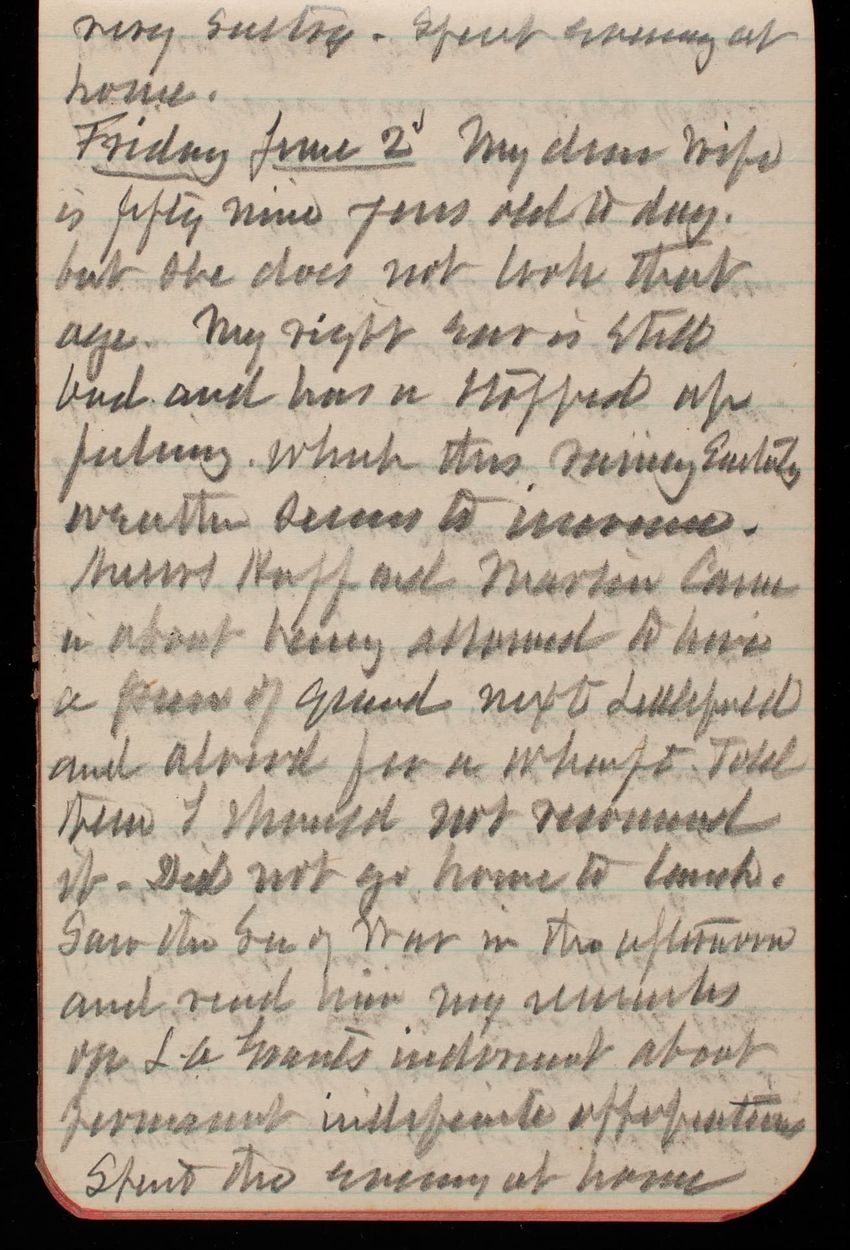 very sultry. Spent evening at
home.
Friday June 2d My dear Wife
is fifty nine years old to day.
but she does not look that
age. My right ear is still
bad and has a stopped up
feeling. which this rainy
weather seems to increase.
Messrs Huff and Martin came
in about being allowed to have
a piece of ground next to Littlefield
and abroad for a wharft. Told
them I should not recommend
it. Did not go home to lunch.
Saw the Sec of War in the afternoon
and read him my remarks
on Grants indorsment about
permanent indefinite appropriations
Spent the evening at home